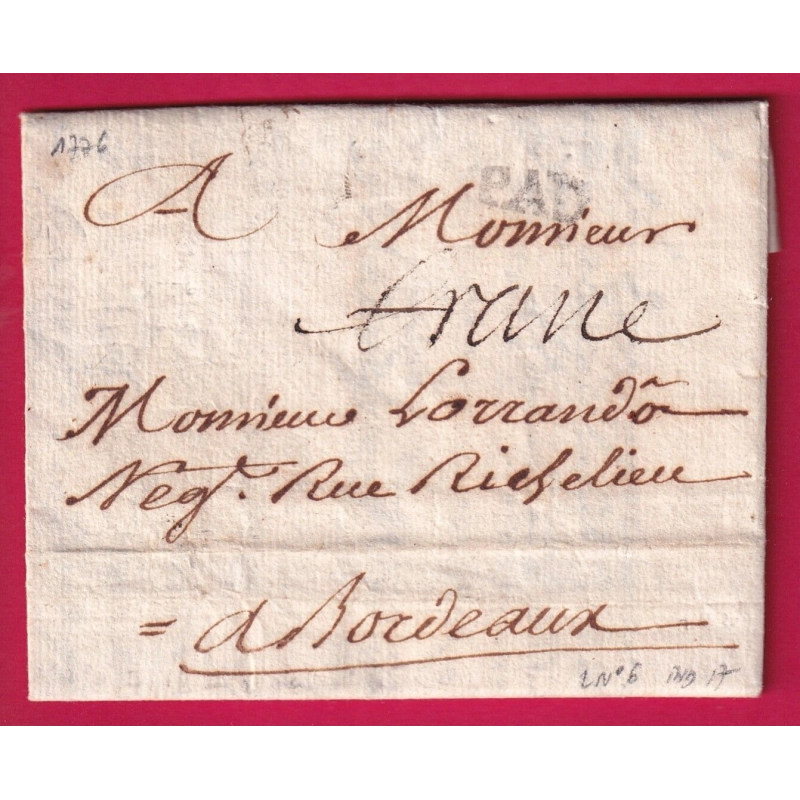 1776
PAU
A Monsieur
franc
Monsieur Lorrandõ
Negt. Rue Richelieu
= a Bordeaux
LN° 6 IND 17